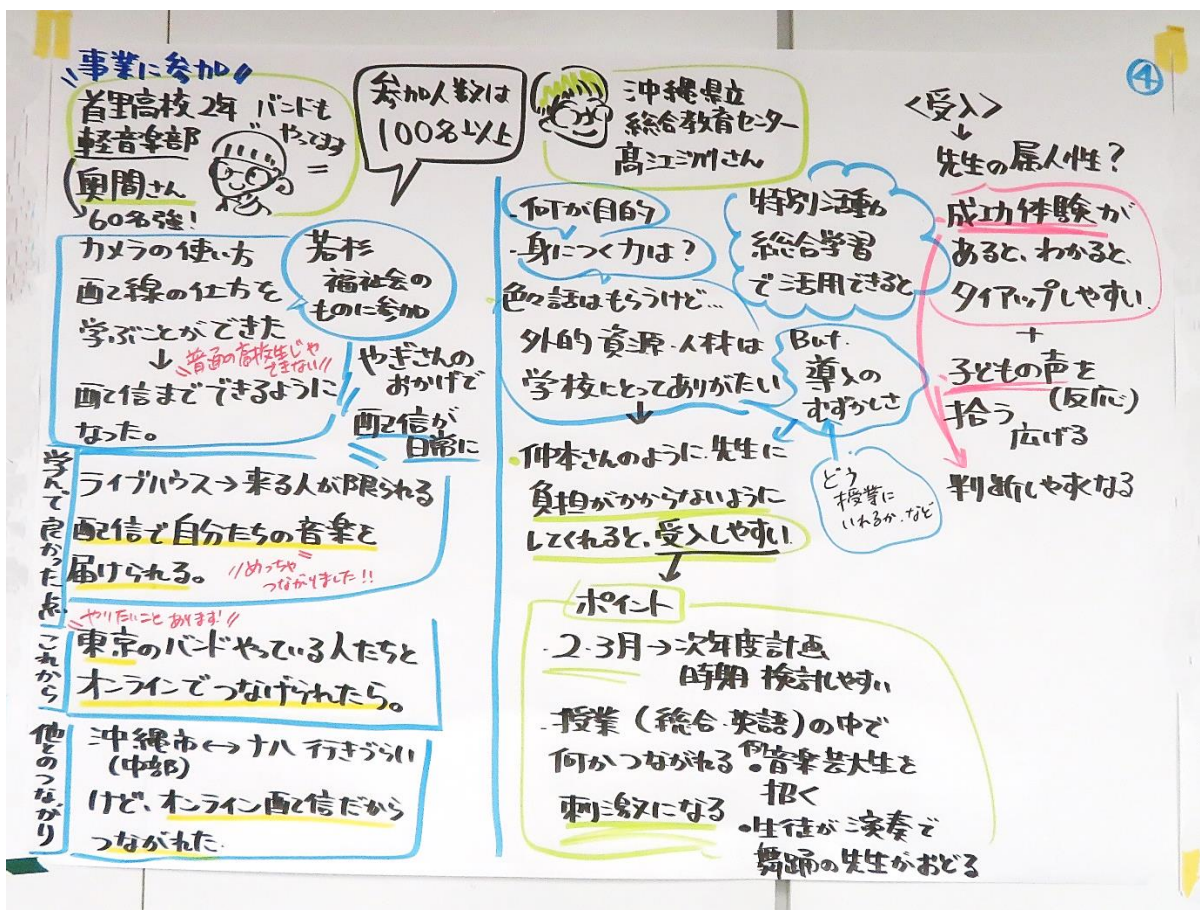 事業に参加
首里高校2年 バンドも
やってます
軽音楽部
奥間さん
60名強!
参加人数は
100名以上
カメラの使い方
配線の仕方を
学ぶことができた
↓
普通の高校生じゃ
できない
配信までできるように
なった。
若杉
福祉会の
ものに参加
やぎさんの
おかげで
配信が
日常に
学んで良かった点
ライブハウス→来る人が限られる
配信で自分たちの音楽を
届けられる。
めっちゃ
つながりました!!
これから
やりたいことあります!
東京のバンドやっている人たちと
オンラインでつなげられたら。
他とのつながり
沖縄市↔ナハ 行きづらい
(中部)
けど、オンライン配信だから
つながれた.
沖縄県立
総合教育センター
髙江洲さん
・何が目的
・身につく力は?
特別活動
総合学習
で活用できると
色々話はもらうけど…
外的資源・人材は
学校にとってありがたい
But.
導入の
むずかしさ
どう
授業に
いれるか、など
・仲本さんのように、先生に
負担がかからないように
してくれると、受入しやすい
ポイント
・2・3月→次年度計画
時期 検討しやすい
・授業(総合・英語)の中で
何かつながれる
刺激になる
例
・音楽芸大生を
招く
・生徒が演奏で
舞踊の先生がおどる
④
<受入>
↓
先生の属人性?
成功体験が
あると、わかると、
タイアップしやすい
+
子どもの声を
(反応)
拾う
広げる
判断しやすくなる